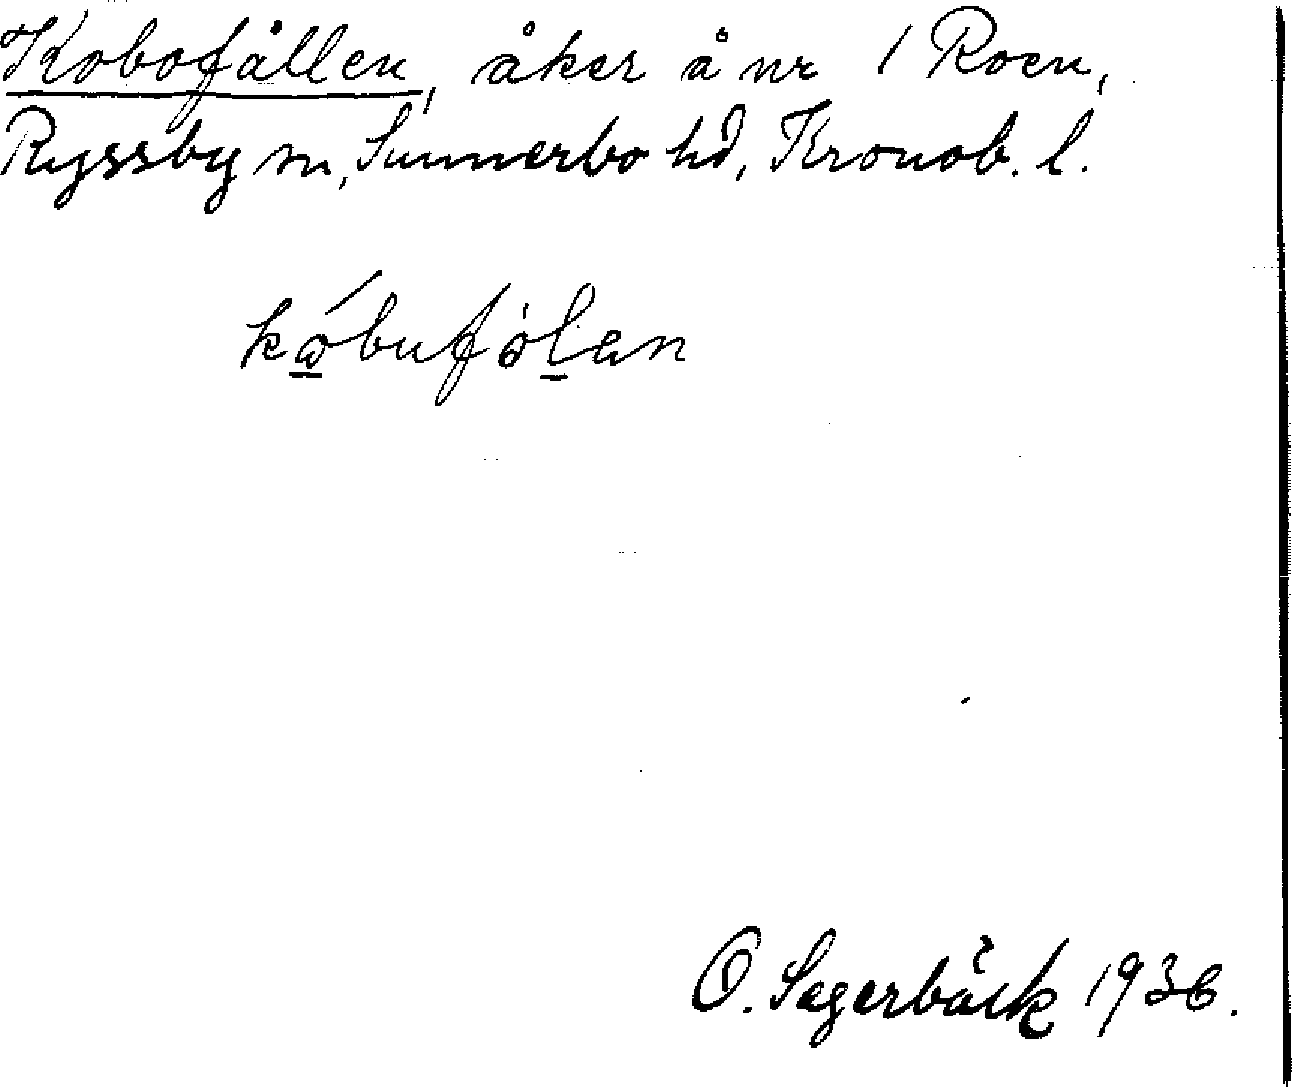 Kobofållen, åker å nr 1 Roen,
Ryssby sn, Sunnerbo hd, Kronob. l.
O. Segerbäck 1936.